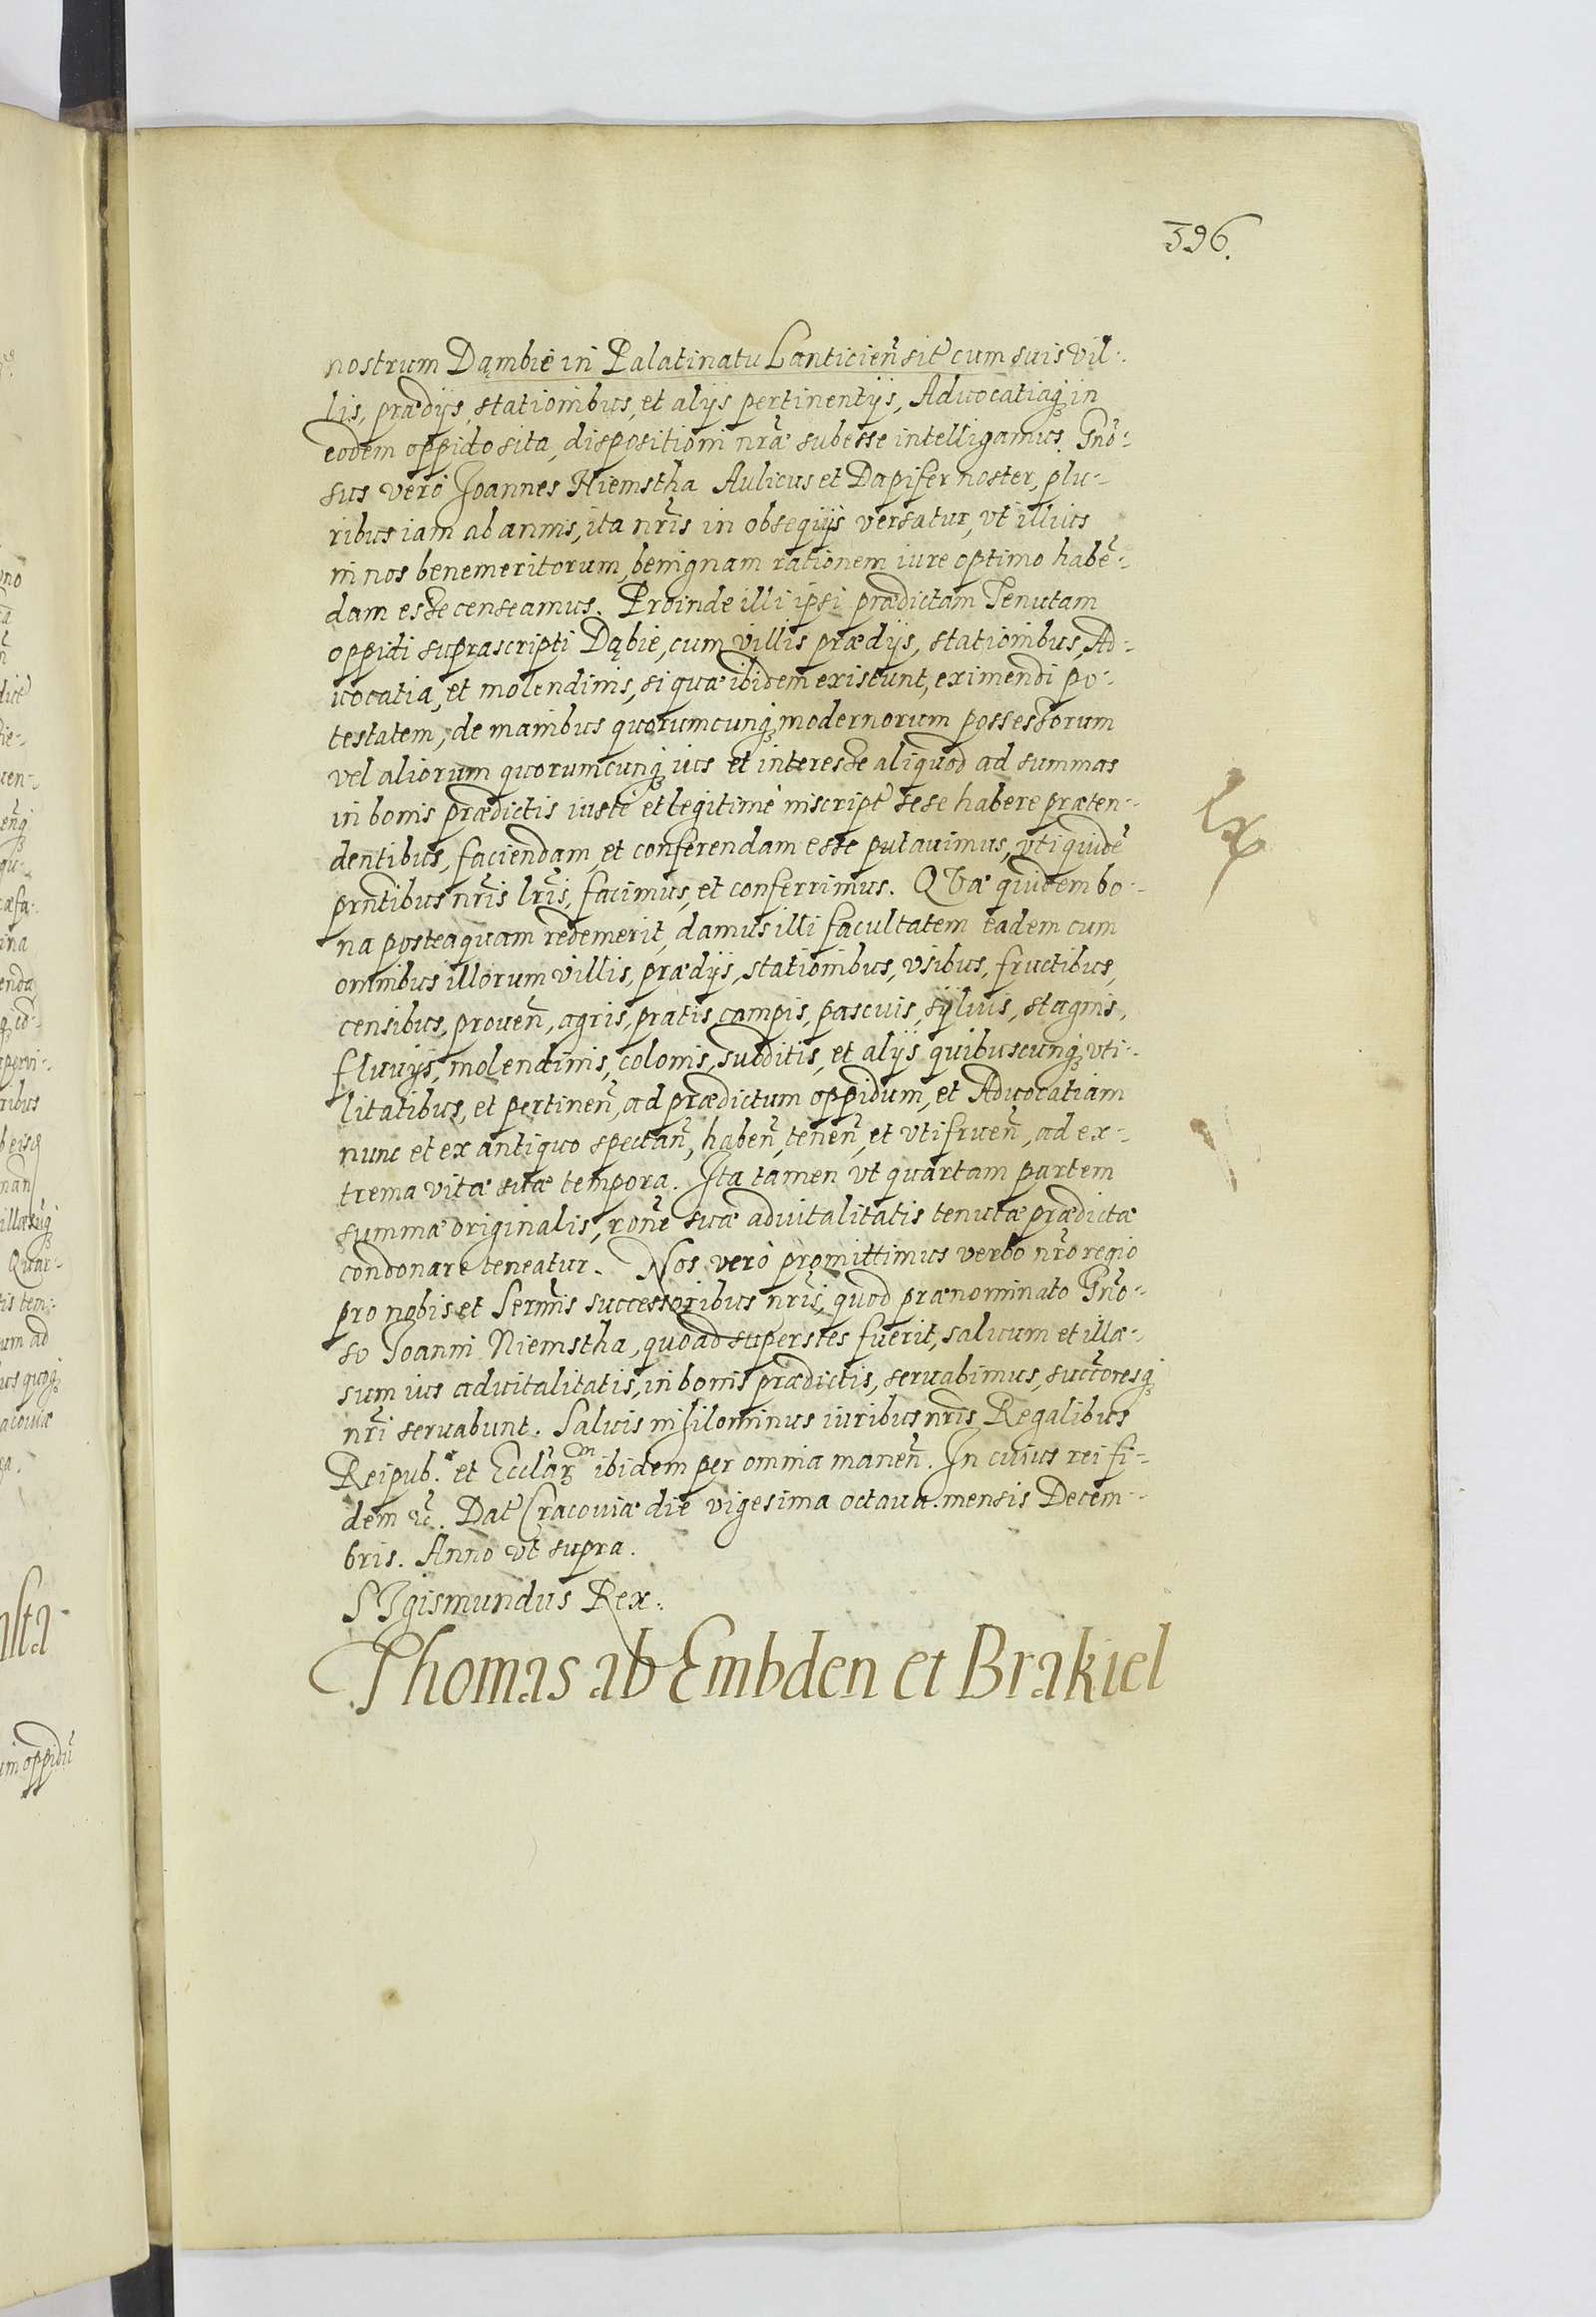 396.
nostrum Dąmbie in Palatinatu Lanticien̄ sit̄ cum suis vil-
lis, prædijs, stationibus, et alijs pertinentijs, Aduocatiaq; in
eodem oppido sita, dispositioni nr̄æ subesse intelligamus. Gn̄o-
sus verò Joannes Niemstha Aulicus et Dapifer noster, plu-
ribus iam ab annis, ita nr̄is in obsequijs versatur, vt illius
in nos benemeritorum, benignam rationem iure optimo habē-
dam esse censeamus. Proinde illi ipsi prædictam Tenutam
oppidi suprascripti Dąbie, cum villis prædijs, stationibus, Ad-
uocatia, et molendinis, si quæ ibidem existunt, eximendi po-
testatem, de manibus quorumcunq; modernorum possessorum
vel aliorum quorumcunq; ius et interesse aliquod ad summas
in bonis prædictis iustè et legitimè inscript̄ sese habere præten-
dentibus, faciendam, et conferendam esse putauimus, vti quidē
pr̄ntibus nr̄is lr̄is, facimus, et conferrimus. QVæ quidem bo-
na posteaquam redemerit, damus illi facultatem eadem cum
omnibus illorum villis, prædijs, stationibus, vsibus, fructibus,
censibus, prouen̄, agris, pratis, campis, pascuis, sÿluis, stagnis,
fluuijs, molendinis, colonis, subditis, et alijs quibuscunq; vti-
litatibus, et pertinen̄, ad prædictum oppidum, et Aduocatiam
nunc et ex antiquo spectan̄, haben̄, tenen̄, et vtifruen̄, ad ex-
trema vitæ suæ tempora. Ita tamen vt quartam partem
summæ originalis, ron̄e suæ aduitalitatis tenutæ prædictæ
condonare teneatur. Nos verò promittimus verbo nr̄o regio
pro nobis et Serm̄is successoribus nr̄is, quod prænominato Gn̄o-
so Joanni Niemstha, quoad superstes fuerit, saluum et illæ-
sum ius aduitalitatis, in bonis prædictis, seruabimus, succ̄oresq;
nr̄i seruabunt. Saluis nihilominus iuribus nr̄is Regalibus
Reipub.æ et Eccl̄arum ibidem per omnia manen̄. In cuius rei fi-
dem &c̄. Dat̄ Cracouiæ die vigesima octaua mensis Decem-
bris. Anno vt supra.
SIgismundus Rex.
Thomas ab Embden et Brakiel